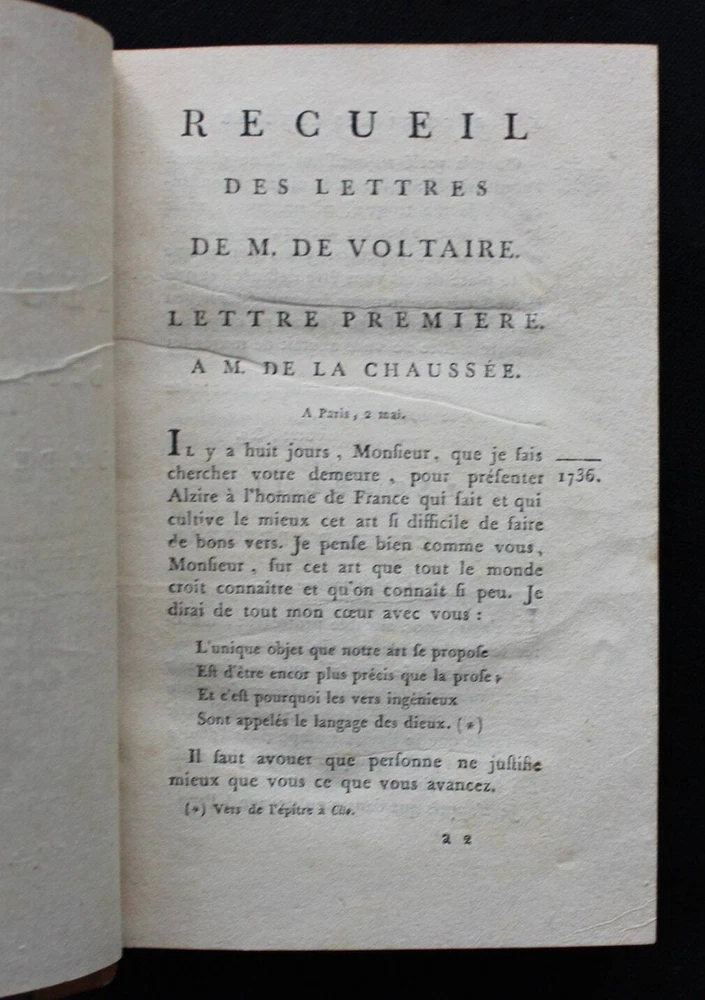 RECUEIL
DES LETTRES
DE M. DE VOLTAIRE.
LETTRE PREMIERE.
A M. DE LA CHAUSSÉE.
A Paris, 2 mai.
IL y a huit jours, Monſieur, que je fais
chercher votre demeure, pour préſenter 1736.
Alzire à l'homme de France qui fait et qui
cultive le mieux cet art ſi difficile de faire
de bons vers. Je penſe bien comme vous,
Monſieur, ſur cet art que tout le monde
croit connaître et qu'on connaît ſi peu. Je
dirai de tout mon cœur avec vous :
L'unique objet que notre art ſe propoſe
Eſt d'être encor plus précis que la proſe,
Et c'eſt pourquoi les vers ingénieux
Sont appelés le langage des dieux. (*)
Il faut avouer que perſonne ne juſtifie
mieux que vous ce que vous avancez.
(*) Vers de l'épître à Clio.
a 2